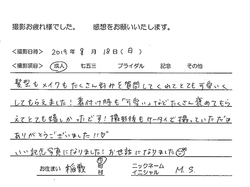 撮影お疲れ様でした。 感想をお願いいたします。
<撮影日時> 2019年 8月 18日(日)
<撮影項目> 成人 七五三 ブライダル 記念 その他
髪型もメイクもたくさん好みを質問してくれてとても可愛く
してもらえました!着付け時も「可愛い」などたくさん褒めてもら
えてとても嬉しかったです!撮影時もサクサク撮っていただけ
ありがとうございました!!
いい記念写真になりました!お世話になりました
お住まい 稲敷 ニックネーム イニシャル M.S